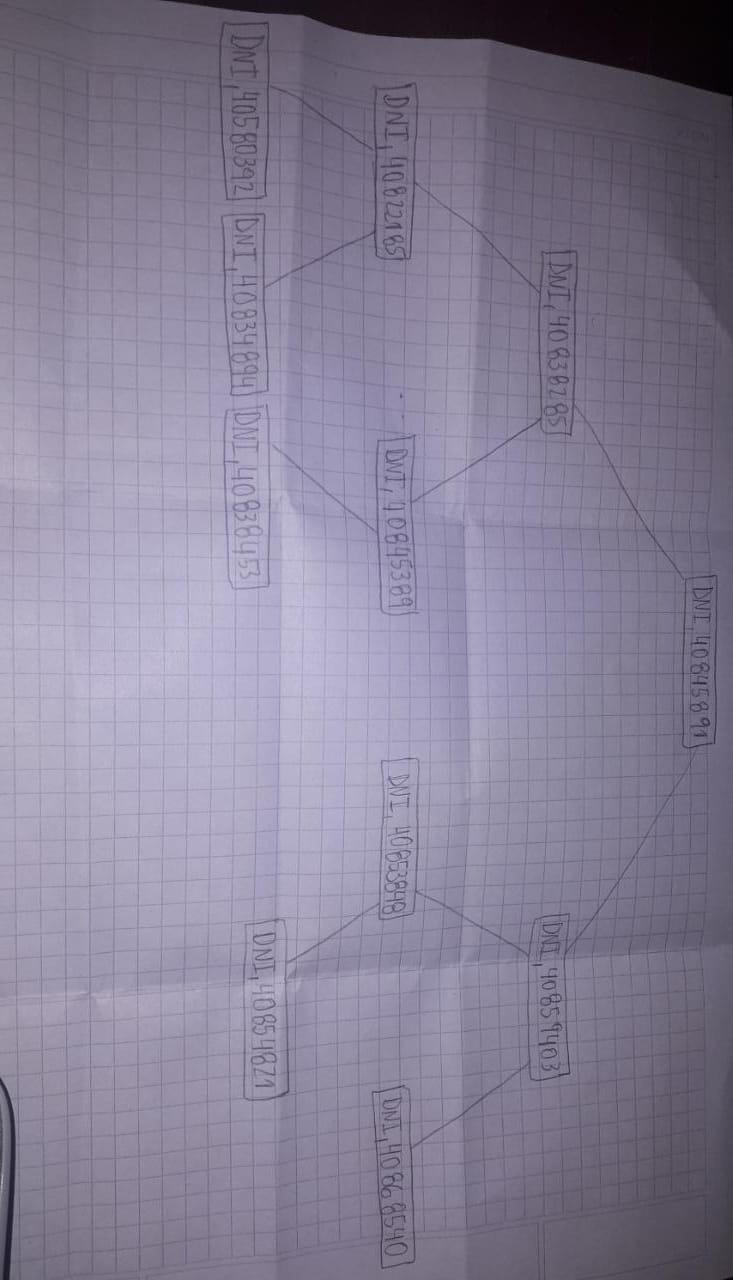 DNI,40845891
DNI,40838285
DNI,40859403
DNI,40822185
DNI,40845389
DNI,40853848
DNI,40868540
DNI,40580392
DNI,40834894
DNI,40838453
DNI,40854821